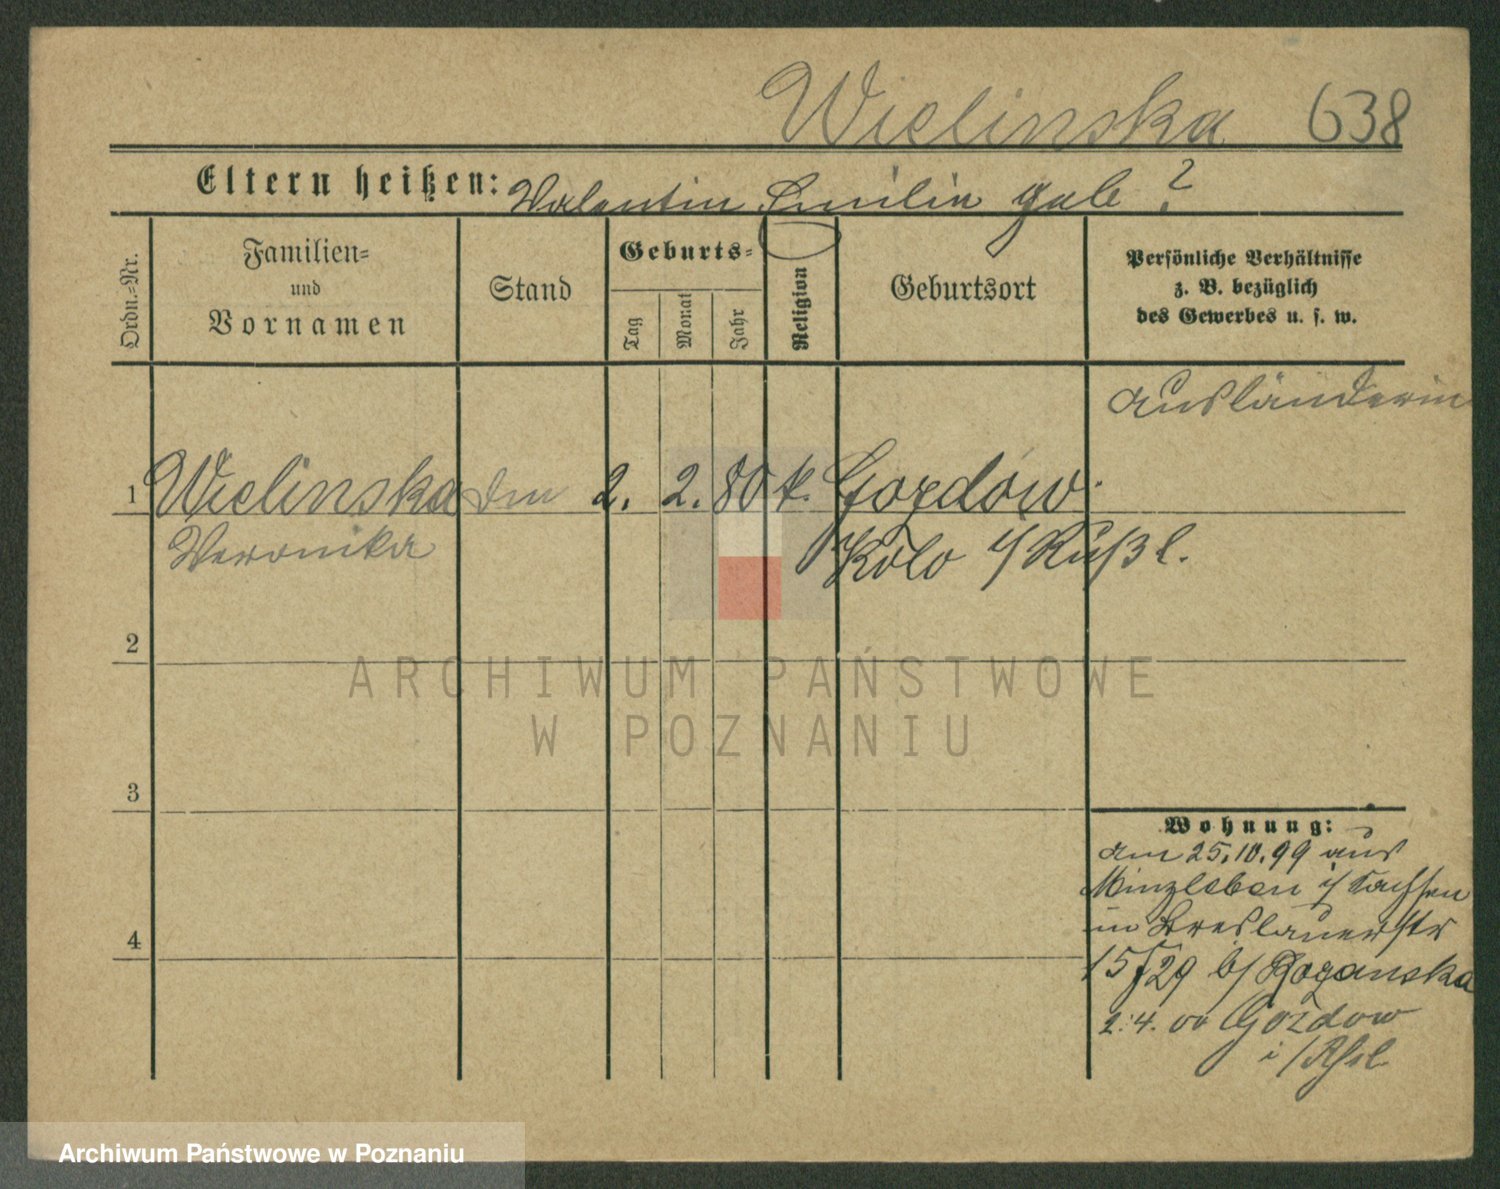 Wielinska 638
Eltern heißen: Valentin Emilie geb ?
Ordn.=Nr.
Familien=
und
Vornamen
Stand
Geburts=
Tag
Monat
Jahr
Religion
Geburtsort
Persönliche Verhältnisse
z. B. bezüglich
des Gewerbes u. s. w.
Ausländerin
1 Wielinska 2. 2. 80 k. Gozdow.
Veronika
Kolo i/ Rußl.
2
ARCHIWUM PAŃSTWOWE
W POZNANIU
3
Wohnung:
am 25.10.99 aus
Minzleben i/ Sachsen
in Breslauerstr
15/29 b/ Roganska
4
2.4.00 Gozdow
i/Rßl
Archiwum Państwowe w Poznaniu